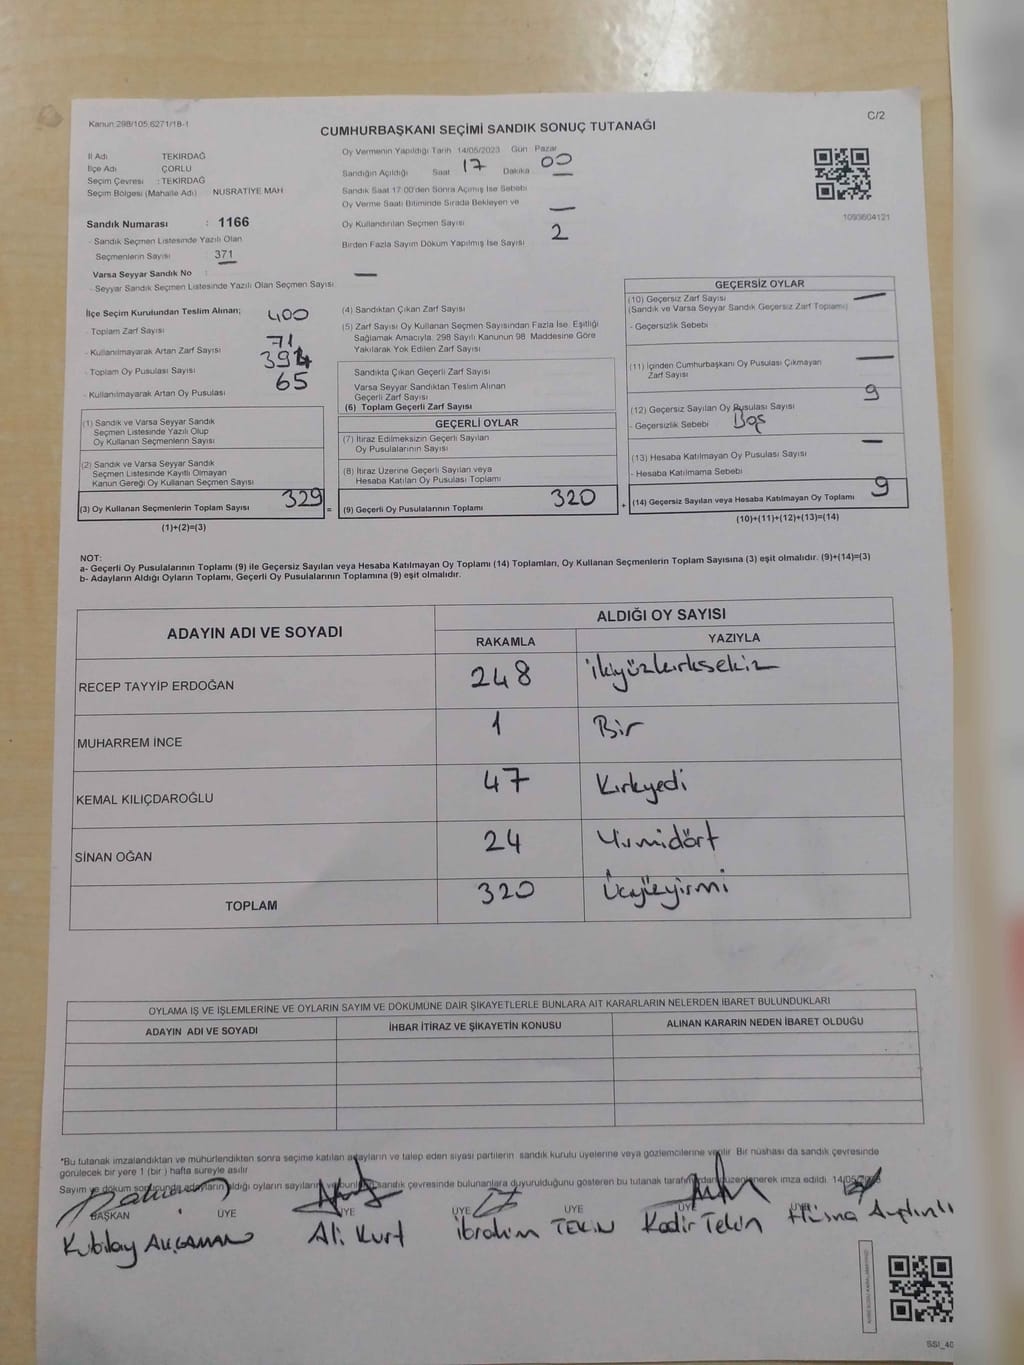 Kanun:298/105,6271/18-1
C/2
CUMHURBAŞKANI SEÇİMİ SANDIK SONUÇ TUTANAĞI
İl Adı TEKİRDAĞ
İlçe Adı ÇORLU
Seçim Çevresi : TEKİRDAĞ
Seçim Bölgesi (Mahalle Adı) NUSRATİYE MAH
Sandık Numarası : 1166
- Sandık Seçmen Listesinde Yazılı Olan
Seçmenlerin Sayısı : 371
Varsa Seyyar Sandık No :
- Seyyar Sandık Seçmen Listesinde Yazılı Olan Seçmen Sayısı —
Oy Vermenin Yapıldığı Tarih 14/05/2023 Gün Pazar
Sandığın Açıldığı Saat 17 Dakika 00
Sandık Saat 17:00'den Sonra Açılmış İse Sebebi
Oy Verme Saati Bitiminde Sırada Bekleyen ve
Oy Kullandırılan Seçmen Sayısı —
Birden Fazla Sayım Döküm Yapılmış İse Sayısı 2
1093604121
İlçe Seçim Kurulundan Teslim Alınan;
- Toplam Zarf Sayısı 400
- Kullanılmayarak Artan Zarf Sayısı 71
- Toplam Oy Pusulası Sayısı 394
- Kullanılmayarak Artan Oy Pusulası 65
(1) Sandık ve Varsa Seyyar Sandık
Seçmen Listesinde Yazılı Olup
Oy Kullanan Seçmenlerin Sayısı
(2) Sandık ve Varsa Seyyar Sandık
Seçmen Listesinde Kayıtlı Olmayan
Kanun Gereği Oy Kullanan Seçmen Sayısı
(3) Oy Kullanan Seçmenlerin Toplam Sayısı 329 =
(1)+(2)=(3)
(4) Sandıktan Çıkan Zarf Sayısı
(5) Zarf Sayısı Oy Kullanan Seçmen Sayısından Fazla İse, Eşitliği
Sağlamak Amacıyla, 298 Sayılı Kanunun 98. Maddesine Göre
Yakılarak Yok Edilen Zarf Sayısı
Sandıkta Çıkan Geçerli Zarf Sayısı
Varsa Seyyar Sandıktan Teslim Alınan
Geçerli Zarf Sayısı
(6) Toplam Geçerli Zarf Sayısı
GEÇERLİ OYLAR
(7) İtiraz Edilmeksizin Geçerli Sayılan
Oy Pusulalarının Sayısı
(8) İtiraz Üzerine Geçerli Sayılan veya
Hesaba Katılan Oy Pusulası Toplamı
(9) Geçerli Oy Pusulalarının Toplamı 320 +
GEÇERSİZ OYLAR
(10) Geçersiz Zarf Sayısı —
(Sandık ve Varsa Seyyar Sandık Geçersiz Zarf Toplamı)
- Geçersizlik Sebebi
(11) İçinden Cumhurbaşkanı Oy Pusulası Çıkmayan
Zarf Sayısı —
(12) Geçersiz Sayılan Oy Pusulası Sayısı 9
- Geçersizlik Sebebi Boş
(13) Hesaba Katılmayan Oy Pusulası Sayısı —
- Hesaba Katılmama Sebebi
(14) Geçersiz Sayılan veya Hesaba Katılmayan Oy Toplamı 9
(10)+(11)+(12)+(13)=(14)
NOT:
a- Geçerli Oy Pusulalarının Toplamı (9) ile Geçersiz Sayılan veya Hesaba Katılmayan Oy Toplamı (14) Toplamları, Oy Kullanan Seçmenlerin Toplam Sayısına (3) eşit olmalıdır. (9)+(14)=(3)
b- Adayların Aldığı Oyların Toplamı, Geçerli Oy Pusulalarının Toplamına (9) eşit olmalıdır.
ADAYIN ADI VE SOYADI ALDIĞI OY SAYISI
RAKAMLA YAZIYLA
RECEP TAYYİP ERDOĞAN 248 İkiyüzkırksekiz
MUHARREM İNCE 1 Bir
KEMAL KILIÇDAROĞLU 47 Kırkyedi
SİNAN OĞAN 24 Yirmidört
TOPLAM 320 Üçyüzyirmi
OYLAMA İŞ VE İŞLEMLERİNE VE OYLARIN SAYIM VE DÖKÜMÜNE DAİR ŞİKAYETLERLE BUNLARA AİT KARARLARIN NELERDEN İBARET BULUNDUKLARI
ADAYIN ADI VE SOYADI İHBAR İTİRAZ VE ŞİKAYETİN KONUSU ALINAN KARARIN NEDEN İBARET OLDUĞU
*Bu tutanak imzalandıktan ve mühürlendikten sonra seçime katılan adayların ve talep eden siyasi partilerin sandık kurulu üyelerine veya gözlemcilerine verilir. Bir nüshası da sandık çevresinde
görülecek bir yere 1 (bir) hafta süreyle asılır.
Sayım ve döküm sonucunda adayların aldığı oyların sayıları bulunanlara duyurulduğunu gösteren bu tutanak tarafımızdan düzenlenerek imza edildi. 14/05/2023
BAŞKAN ÜYE ÜYE ÜYE ÜYE ÜYE ÜYE
Kubilay Ali Kurt İbrahim TEKİN Kadir Tekin Hüsna Aydınlı
SSI_40